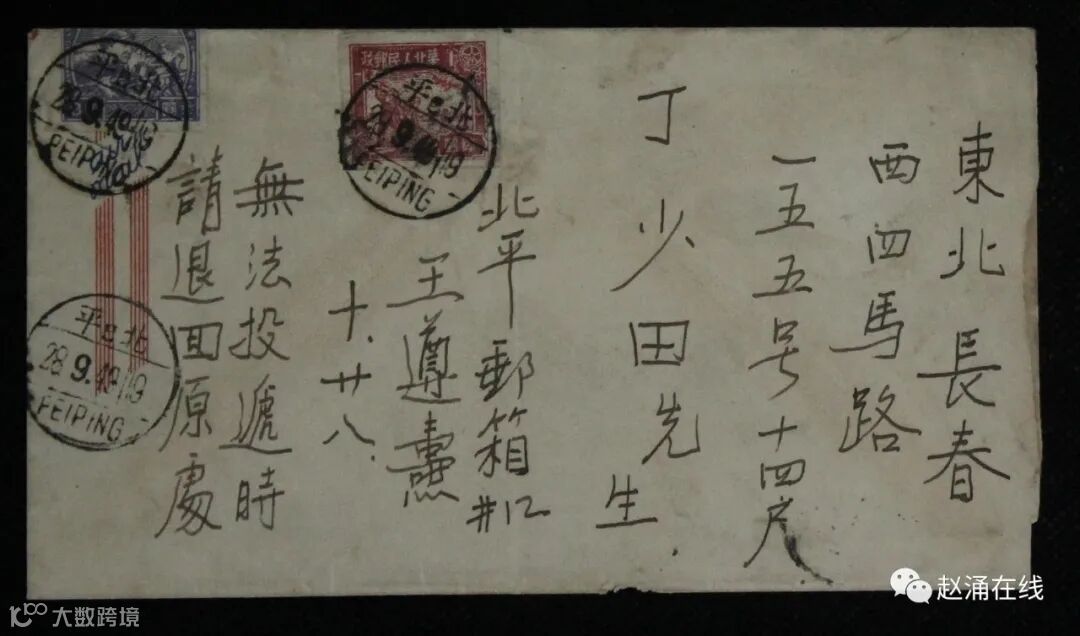 東北長春
西四馬路
一五五号十四戶
丁少田先生
北平郵箱
#12
王遵熹
十.廿八.
無法投遞時
請退囬原處
華北人民郵政
北平
28.9.49
PEIPING
北平
28.9.49
北平
28.9.49
PEIPING
赵涌在线
大数跨境